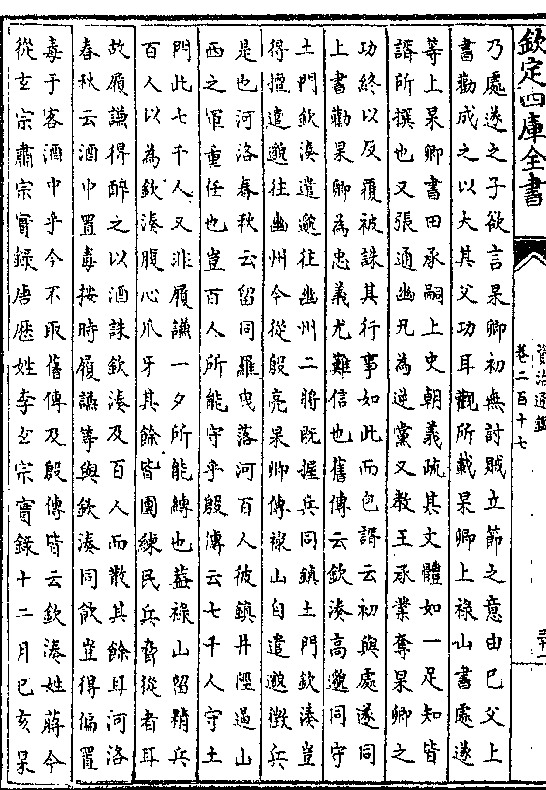 欽定四庫全書
資治通鑑
卷二百十七
乃處遂之子欲言杲卿初無討賊立節之意由己父上
書勸成之以大其父功耳觀所載杲卿上祿山書處遂
等上杲卿書田承嗣上史朝義疏其文體如一足知皆
諝所撰也又張通幽兄為逆黨又教王承業奪杲卿之
功終以反覆被誅其行事如此而包諝云初與處遂同
上書勸杲卿為忠義尤難信也舊傳云欽湊高邈同守
土門欽湊遣邈往幽州二將既握兵同鎮土門欽湊豈
得擅遣邈往幽州今從殷亮杲卿傳祿山自遣邈徵兵
是也河洛春秋云留同羅曳落河百人彼鎮井陘遏山
西之軍重任也豈百人所能守乎殷傳云七千人守土
門此七千人又非履謙一夕所能縛也葢祿山留精兵
百人以為欽湊腹心爪牙其餘皆團練民兵脅從者耳
故履謙得醉之以酒誅欽湊及百人而散其餘耳河洛
春秋云酒中置毒按時履謙等與欽湊同飲豈得偏置
毒于客酒中乎今不取舊傳及殷傳皆云欽湊姓蔣今
從玄宗肅宗實錄唐歷姓李玄宗實錄十二月己亥杲